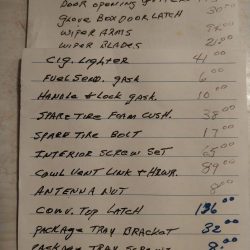 Door opening
Glove Box Door Latch 30.00
Wiper Arms
Wiper Blades 21.00
Cig. Lighter 41.00
Fuel Send. gask 6.00
Handle & Lock gask. 10.00
Spare Tire Foam Cush. 38.00
Spare Tire Bolt 17.00
Interior Screw Set 65.00
Cowl Vent Link & Hdwr. 89.00
Antenna Nut 8.00
Conv. Top Latch 136.00
Package Tray Bracket 32.00
Package Tray Screws 8.